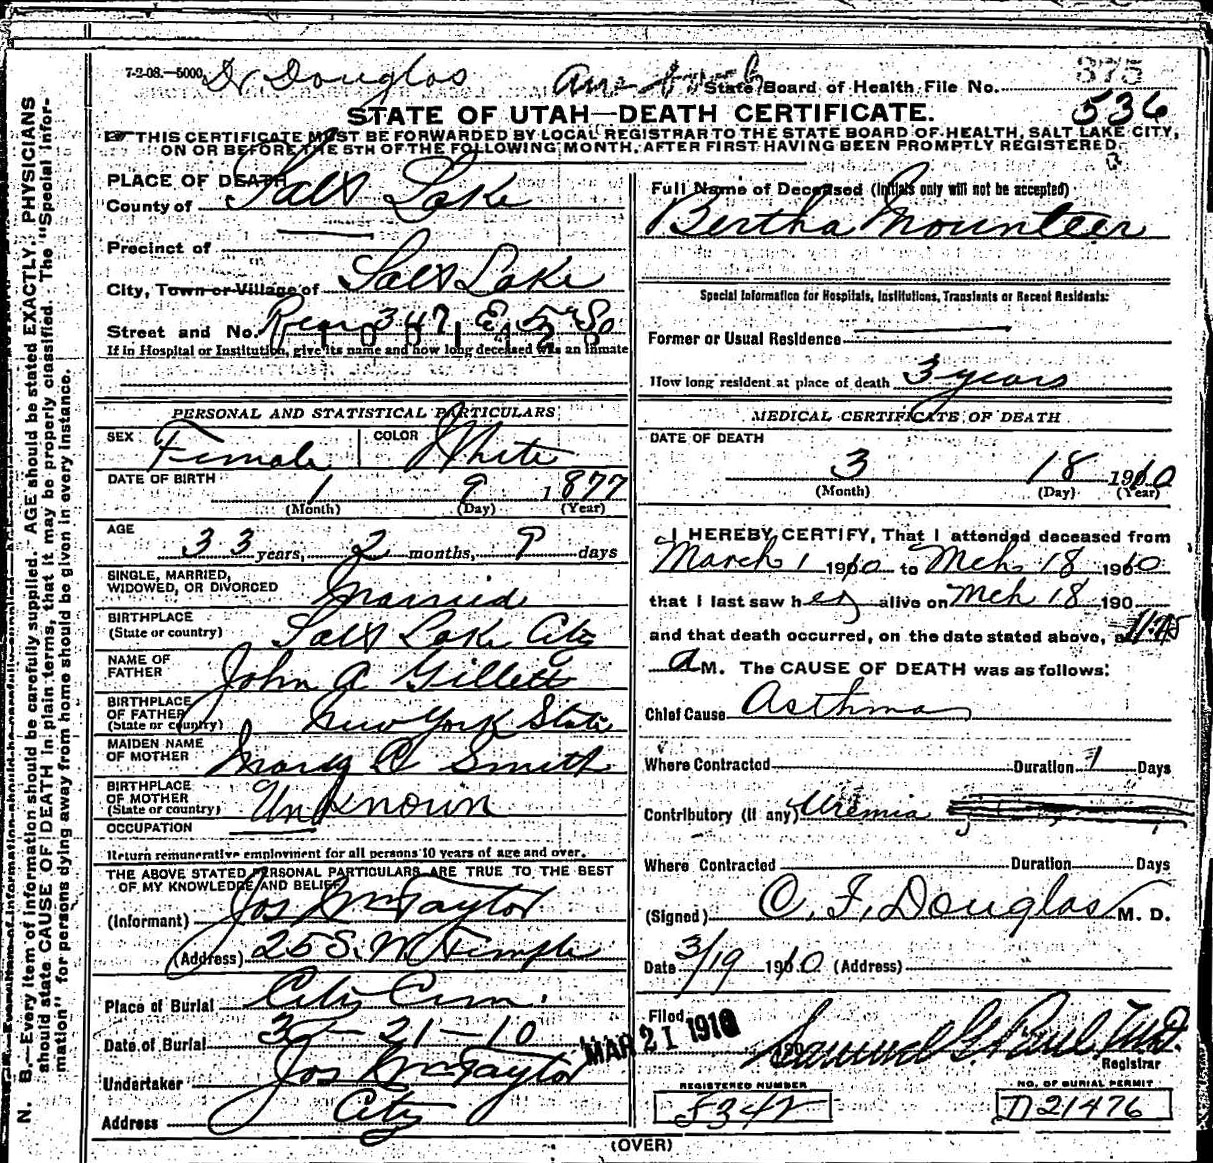 7-2-08.—5000 Dr Douglas
State Board of Health File No. 375
536
STATE OF UTAH—DEATH CERTIFICATE.
THIS CERTIFICATE MUST BE FORWARDED BY LOCAL REGISTRAR TO THE STATE BOARD OF HEALTH, SALT LAKE CITY,
ON OR BEFORE THE 5TH OF THE FOLLOWING MONTH, AFTER FIRST HAVING BEEN PROMPTLY REGISTERED.
N. B.—Every item of information should be carefully supplied. AGE should be stated EXACTLY. PHYSICIANS
should state CAUSE OF DEATH in plain terms, that it may be properly classified. The "Special Infor-
mation" for persons dying away from home should be given in every instance.
PLACE OF DEATH
County of Salt Lake
Precinct of
City, Town or Village of Salt Lake
Street and No. Rear 347 E 5th So
If in Hospital or Institution, give its name and how long deceased was an inmate
PERSONAL AND STATISTICAL PARTICULARS
SEX Female COLOR White
DATE OF BIRTH 1 9 1877
(Month) (Day) (Year)
AGE
33 years, 2 months, 9 days
SINGLE, MARRIED,
WIDOWED, OR DIVORCED Married
BIRTHPLACE
(State or country) Salt Lake City
NAME OF
FATHER John A Gillett
BIRTHPLACE
OF FATHER
(State or country) New York State
MAIDEN NAME
OF MOTHER Mary C Smith
BIRTHPLACE
OF MOTHER
(State or country) Unknown
OCCUPATION
Return remunerative employment for all persons 10 years of age and over.
THE ABOVE STATED PERSONAL PARTICULARS ARE TRUE TO THE BEST
OF MY KNOWLEDGE AND BELIEF
(Informant) Jos Wm Taylor
(Address) 25 S. W Temple
Place of Burial City Cem.
Date of Burial 3 - 21 - 10
Undertaker Jos Wm Taylor
Address City
Full Name of Deceased (Initials only will not be accepted)
Bertha Mounteer
Special Information for Hospitals, Institutions, Transients or Recent Residents:
Former or Usual Residence
How long resident at place of death 3 years
MEDICAL CERTIFICATE OF DEATH
DATE OF DEATH
3 18 1910
(Month) (Day) (Year)
I HEREBY CERTIFY, That I attended deceased from
March 1 1910 to Mch 18 1910
that I last saw her alive on Mch 18 190
and that death occurred, on the date stated above, at 11:45
a M. The CAUSE OF DEATH was as follows:
Chief Cause Asthma
Where Contracted Duration 7 Days
Contributory (if any) Uremia
Where Contracted Duration Days
(Signed) C. F. Douglas M. D.
Date 3/19 1910 (Address)
Filed MAR 21 1910
Samuel G Paul M.D.
Registrar
REGISTERED NUMBER NO. OF BURIAL PERMIT
F342 D21476
(OVER)